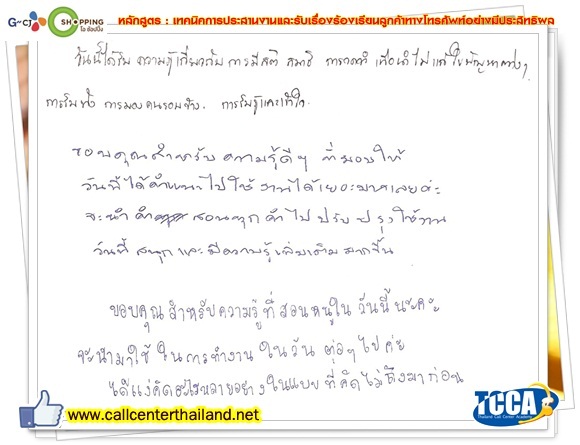 GCJ O SHOPPING
โอ ช้อปปิ้ง
หลักสูตร : เทคนิคการประสานงานและรับเรื่องร้องเรียนลูกค้าทางโทรศัพท์อย่างมีประสิทธิผล
วันนี้ได้รับ ความรู้เกี่ยวกับ การมีสติ สมาธิ การจดจำ เพื่อนำไปแก้ไขปัญหาต่างๆ
การรับฟัง การมองคนรอบข้าง. การรับรู้และเข้าใจ.
ขอบคุณสำหรับ ความรู้ดีๆ ที่มอบให้
วันนี้ได้คำแนะนำไปใช้งานได้เยอะมากเลยค่ะ
จะนำ คำ สอนทุกคำไป ปรับปรุงใช้งาน
วันนี้ สนุกและมีความรู้เพิ่มเติมมากขึ้น
ขอบคุณ สำหรับความรู้ที่สอนหนูใน วันนี้ นะคะ
จะนำมาใช้ ในการทำงาน ในวัน ต่อๆ ไป ค่ะ
ได้แง่คิดอะไรหลายอย่าง ในแบบ ที่คิดไม่ถึงมาก่อน
www.callcenterthailand.net
TCCA
Thai Call Center Academy